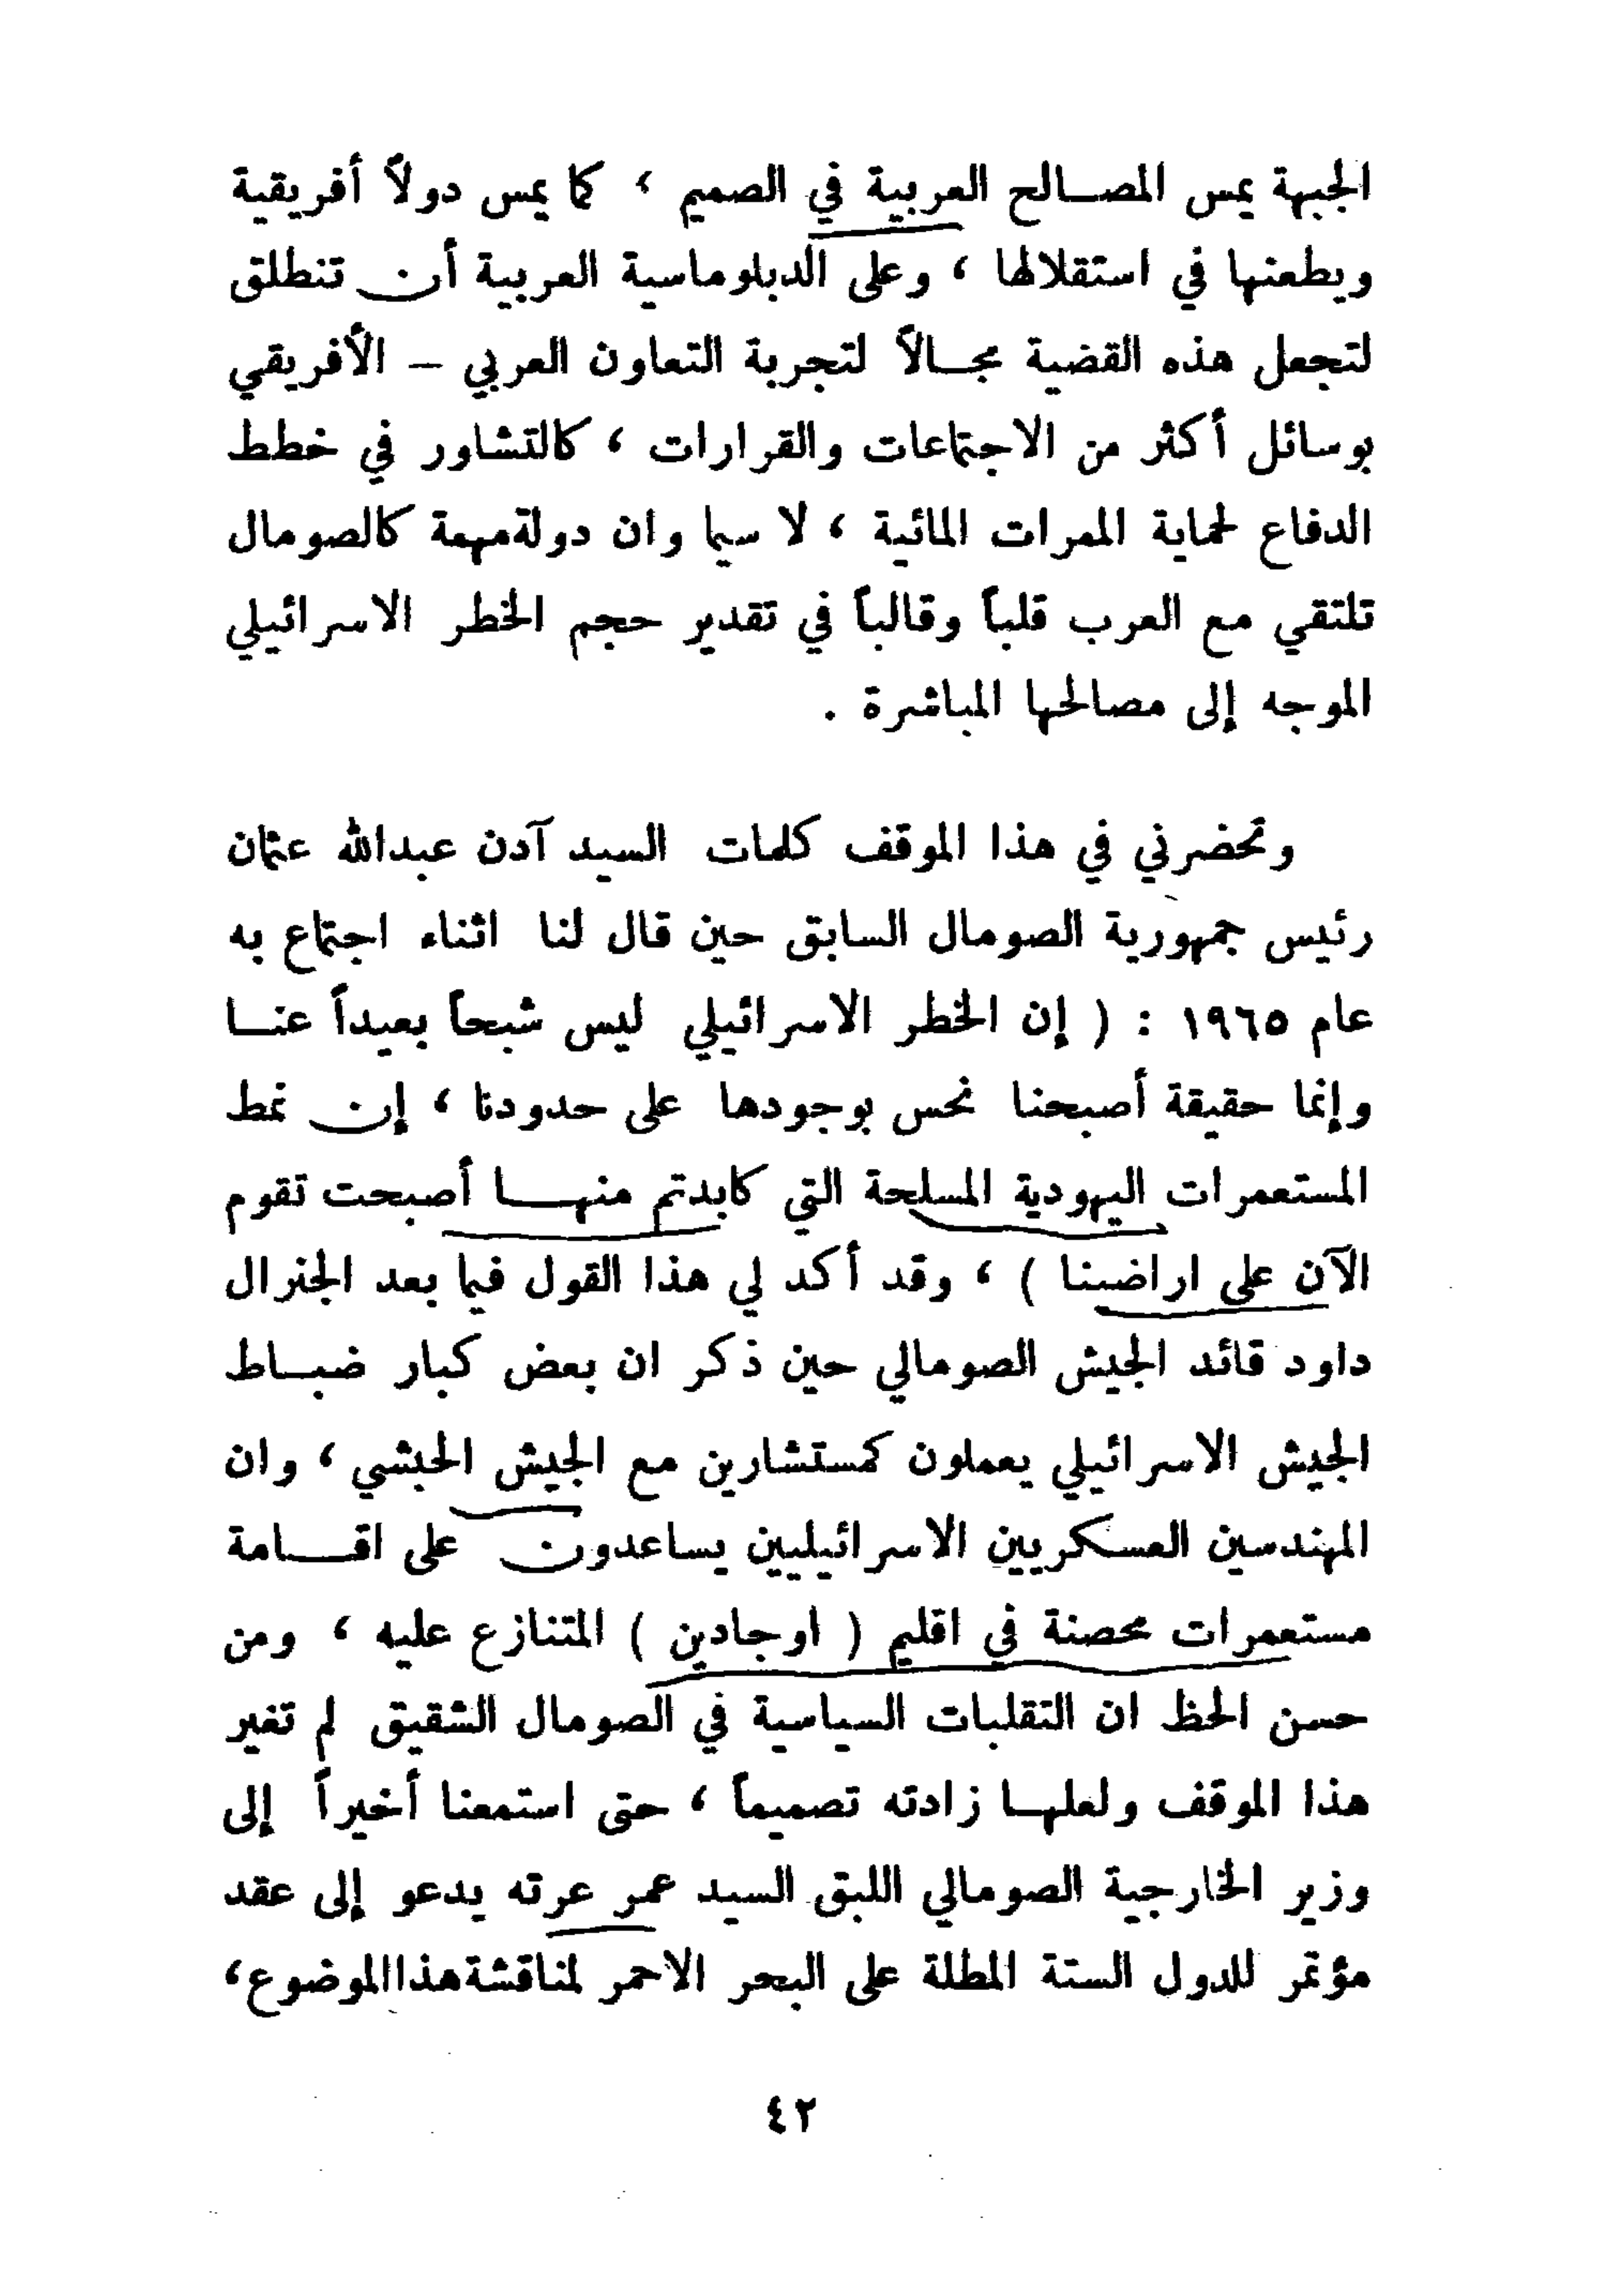 الجبهة يمس المصالح العربية في الصميم ، كما يمس دولاً أفريقية
ويطعنها في استقلالها ، وعلى الدبلوماسية العربية أن تنطلق
لتجعل هذه القضية مجالاً لتجربة التعاون العربي – الأفريقي
بوسائل أكثر من الاجتماعات والقرارات ، كالتشاور في خطط
الدفاع لحماية الممرات المائية ، لا سيما وان دولة مهمة كالصومال
تلتقي مع العرب قلباً وقالباً في تقدير حجم الخطر الاسرائيلي
الموجه إلى مصالحها المباشرة .
وتحضرني في هذا الموقف كلمات السيد آدن عبدالله عثمان
رئيس جمهورية الصومال السابق حين قال لنا اثناء اجتماع به
عام ١٩٦٥ : ( إن الخطر الاسرائيلي ليس شبحاً بعيداً عنا
وإنما حقيقة أصبحنا نحس بوجودها على حدودنا ، إن نمط
المستعمرات اليهودية المسلحة التي كابدتم منها أصبحت تقوم
الآن على اراضينا ) ، وقد أكد لي هذا القول فيما بعد الجنرال
داود قائد الجيش الصومالي حين ذكر ان بعض كبار ضباط
الجيش الاسرائيلي يعملون كمستشارين مع الجيش الحبشي ، وان
المهندسين العسكريين الاسرائيليين يساعدون على اقامة
مستعمرات محصنة في اقليم ( اوجادين ) المتنازع عليه ، ومن
حسن الحظ ان التقلبات السياسية في الصومال الشقيق لم تغير
هذا الموقف ولعلها زادته تصميماً ، حتى استمعنا أخيراً إلى
وزير الخارجية الصومالي اللبق السيد عمر عرته يدعو إلى عقد
مؤتمر للدول الستة المطلة على البحر الاحمر لمناقشة هذا الموضوع ،
٤٢